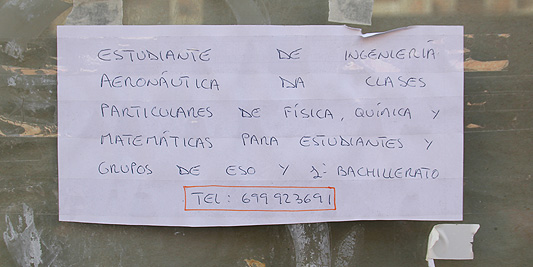 ESTUDIANTE DE INGENIERÍA
AERONÁUTICA DA CLASES
PARTICULARES DE FÍSICA, QUÍMICA Y
MATEMÁTICAS PARA ESTUDIANTES Y
GRUPOS DE ESO Y 2º BACHILLERATO
TEL: 699923691